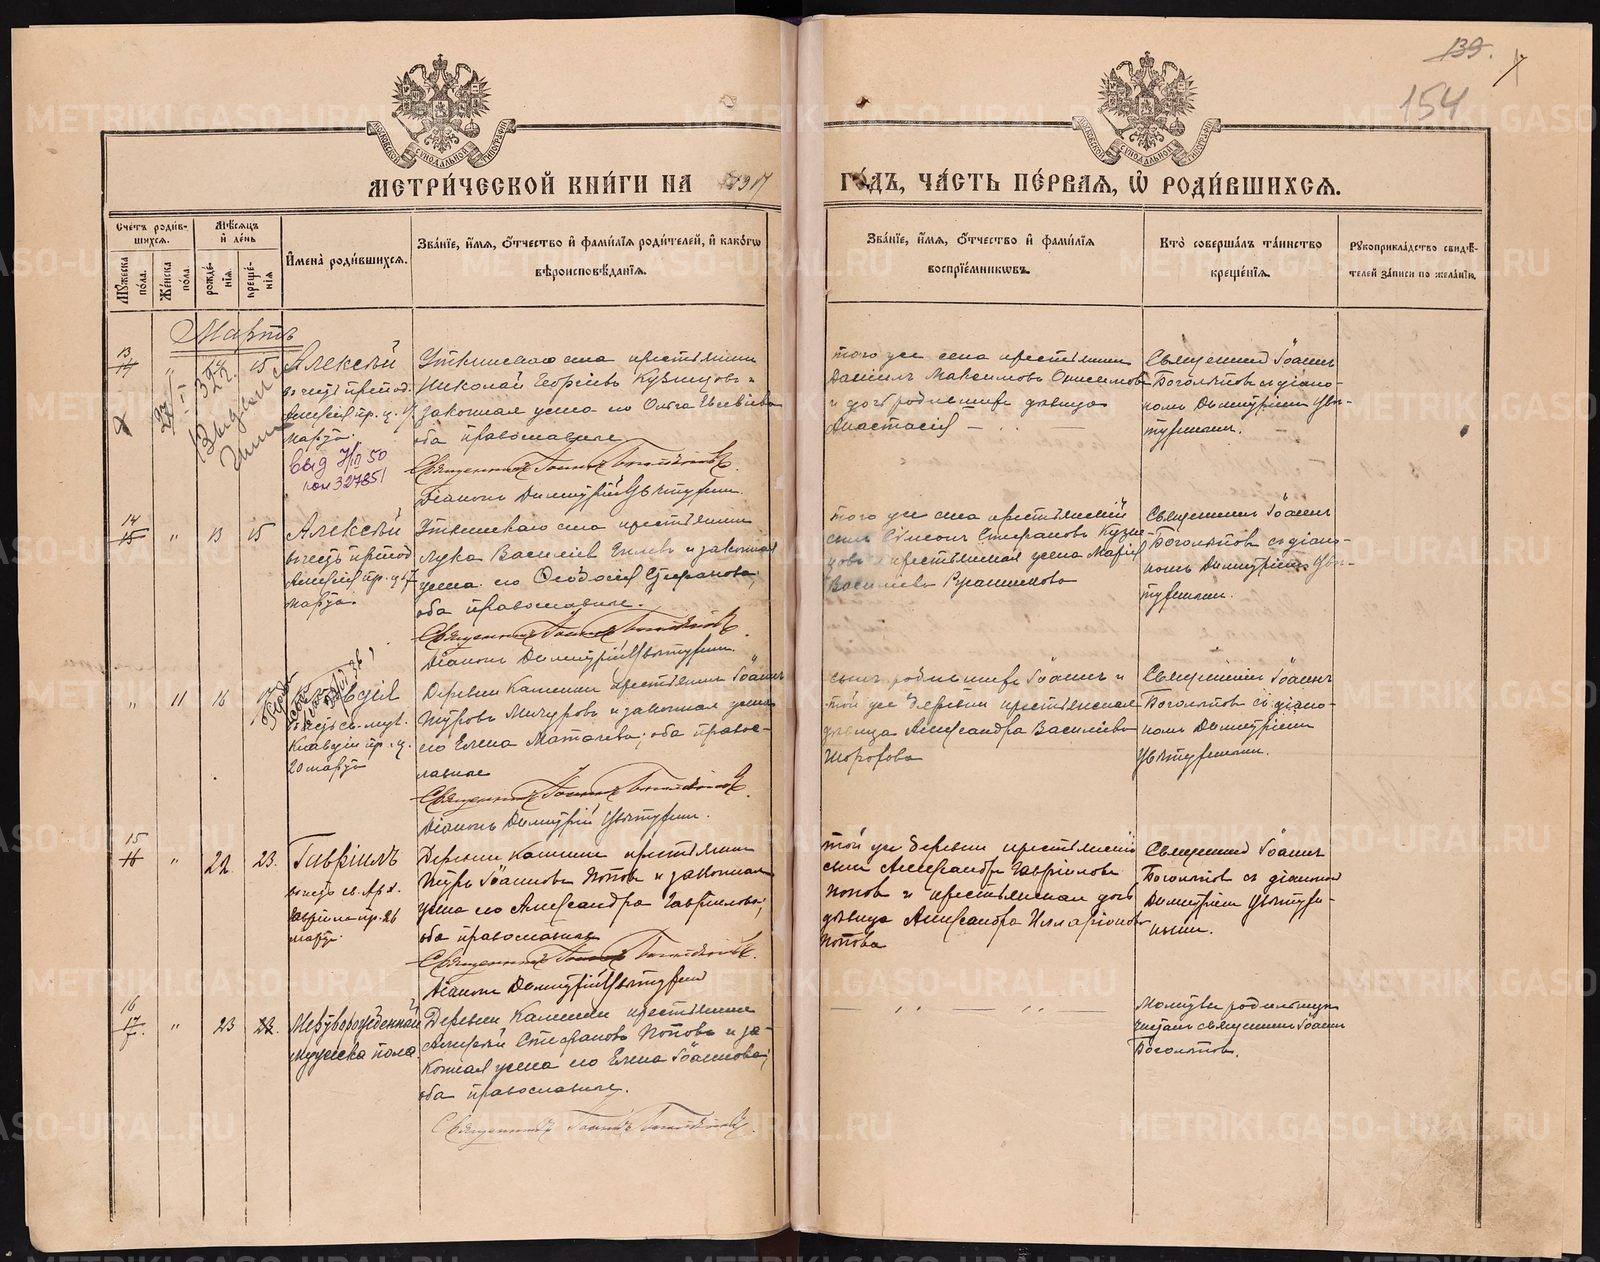 139.
154
МЕТРИ́ЧЕСКОЙ КНИ́ГИ НА 1917 ГО́ДЪ, ЧА́СТЬ ПЕ́РВАЯ, Ѡ РОДИ́ВШИХСЯ.
Счетъ роди́вшихся.
Мꙋ́жеска по́ла.
Же́нска по́ла.
Мѣ́сяцъ и де́нь
рожде́нія.
креще́нія
И́мена̀ роди́вшихся.
Зва́ніе, и́мя, о́тчество и фами́лія роди́телей, и како́гѡ
вѣроисповѣ́данія.
Зва́ніе, и́мя, о́тчество и фами́лія
воспріе́мникѡвъ.
Кто̀ соверша́лъ та́инство
креще́нія.
Рꙋкоприкла́дство свидѣ́-
телей за́писи по жела́нію.
Мартъ
13
15
Алексѣй
въ честь препод.
Алексія пр. ц. 17
марта.
Выд 7/III 50
Уткинскаго села крестьянинъ
Николай Георгіевъ Кузнецовъ и
законная жена его Ольга
оба православные.
Священникъ Іоаннъ Боголѣповъ.
Діаконъ Димитрій Цвѣтухинъ.
того же села крестьянинъ
Даніилъ Максимовъ Онисимовъ
и дочь родившихъ дѣвица
Анастасія
Священникъ Іоаннъ
Боголѣповъ съ діако-
номъ Димитріемъ Цвѣ-
тухинымъ.
14
15 " 13 15
Алексѣй
въ честь препод.
Алексія пр. ц. 17
марта.
Уткинскаго села крестьянинъ
Лука Василіевъ и законная
жена его Ѳеодосія Стефанова,
оба православные.
Священникъ Іоаннъ Боголѣповъ.
Діаконъ Димитрій Цвѣтухинъ.
того же села крестьянскій
сынъ Симеонъ Стефановъ Кузне-
цовъ и крестьянская жена Марія
Василіева
Священникъ Іоаннъ
Боголѣповъ съ діако-
номъ Димитріемъ Цвѣ-
тухинымъ.
" 11 16
въ честь св. муч.
Клавдіи пр. ц.
20 марта
Деревни Каменки крестьянинъ Іоаннъ
Петровъ и законная жена
его Елена оба правос-
лавные
Священникъ Іоаннъ Боголѣповъ.
Діаконъ Димитрій Цвѣтухинъ.
сынъ родившихъ Іоаннъ и
той же деревни крестьянская
дѣвица Александра Василіева
Священникъ Іоаннъ
Боголѣповъ съ діако-
номъ Димитріемъ
Цвѣтухинымъ.
15
16 " 22 23.
Гавріилъ
въ честь св. Арх.
Гавріила пр. 26
марта.
Деревни Каменки крестьянинъ
Петръ Іоанновъ Поповъ и законная
жена его Александра Гавріилова,
оба православные
Священникъ Іоаннъ Боголѣповъ.
Діаконъ Димитрій Цвѣтухинъ
той же деревни крестьянскій
сынъ Александръ Гавріиловъ
Поповъ и крестьянская дочь
дѣвица Александра Илларіонова
Попова
Священникъ Іоаннъ
Боголѣповъ съ діакономъ
Димитріемъ Цвѣтухи-
нымъ.
16
17 " 23 23.
Мертворожденный
мужеска пола.
Деревни Каменки крестьянинъ
Алексѣй Стефановъ Поповъ и за-
конная жена его Елена Іоаннова,
оба православные.
Священникъ Іоаннъ Боголѣповъ.
Молитву родильницѣ
читалъ священникъ Іоаннъ
Боголѣповъ.
METRIKI.GASO-URAL.RU